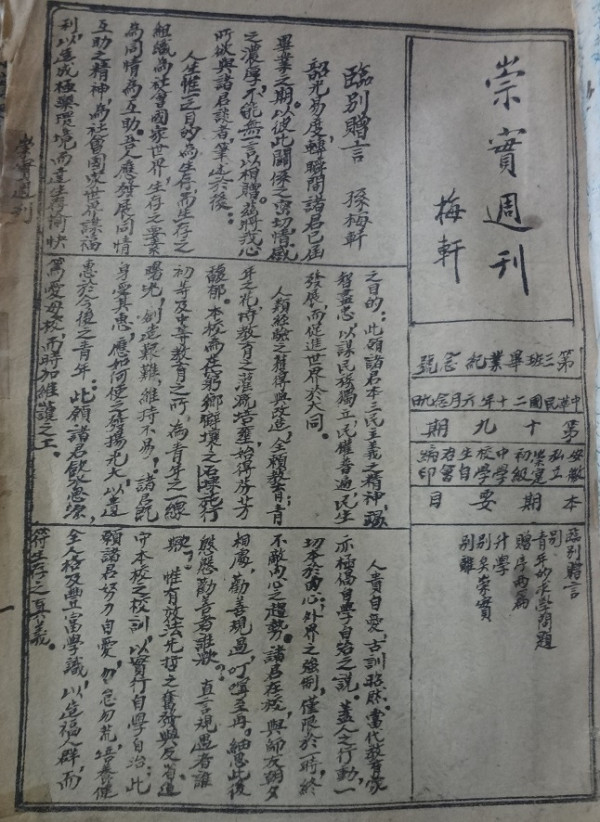 崇實週刊
梅軒
第三班畢業紀念號
中華民國二十年六月念九日
第十九期
安徽私立崇實初級中學校學生自治會編印
本期要目
臨別贈言
別
青年的求學問題
贈序兩篇
升學
別矣崇實
別離
臨別贈言　孫梅軒
韶光易度，轉瞬間諸君已屆
畢業之期，以彼此關係之密切，情感
之濃厚，不能無一言以相贈。茲將我心
所欲與諸君談者，筆之於後：
人生惟一之目的為生存，而生存之
組織為社會國家世界，生存之要素
為同情為互助。吾人應發展同情
互助之精神，為社會國家世界謀福
利，以造成極樂環境，而達生存愉快
之目的；此願諸君本三民主義之精神，竭
智盡忠，以謀民族獨立，民權普遍，民生
發展，而促進世界於大同。
人類經驗之獲得與改造，全賴教育；青
年之花，待教育之灌溉培壅，始得芬芳
馥郁。本校為在窮鄉僻壤之石埭，先行
初等及中等教育之所，為青年之一線
曙光，創造艱難，維持不易；諸君既
身受其惠，應如何使之發揚光大，以遺
惠於今後之青年；此願諸君飲水思源，
篤愛母校，而時加維護之工。
人貴自愛，古訓昭然。當代教育家
亦極倡自學自治之說。蓋人之行動，一
切本於內心，外界之強制，僅限於一時，終
不敵內心之趨勢。諸君在校，與師友朝夕
相處，勸善規過，叮嚀至再。細思此後
殷殷勸善者誰歟。直言規過者誰
歟。惟有效法先哲之奮發與反省，遵
守本校之校訓，以實行自學自治；此
願諸君努力自愛，勿怠勿荒，培養健
全人格及豐富學識，以造福人群，而
符生存之真義。
崇實週刊